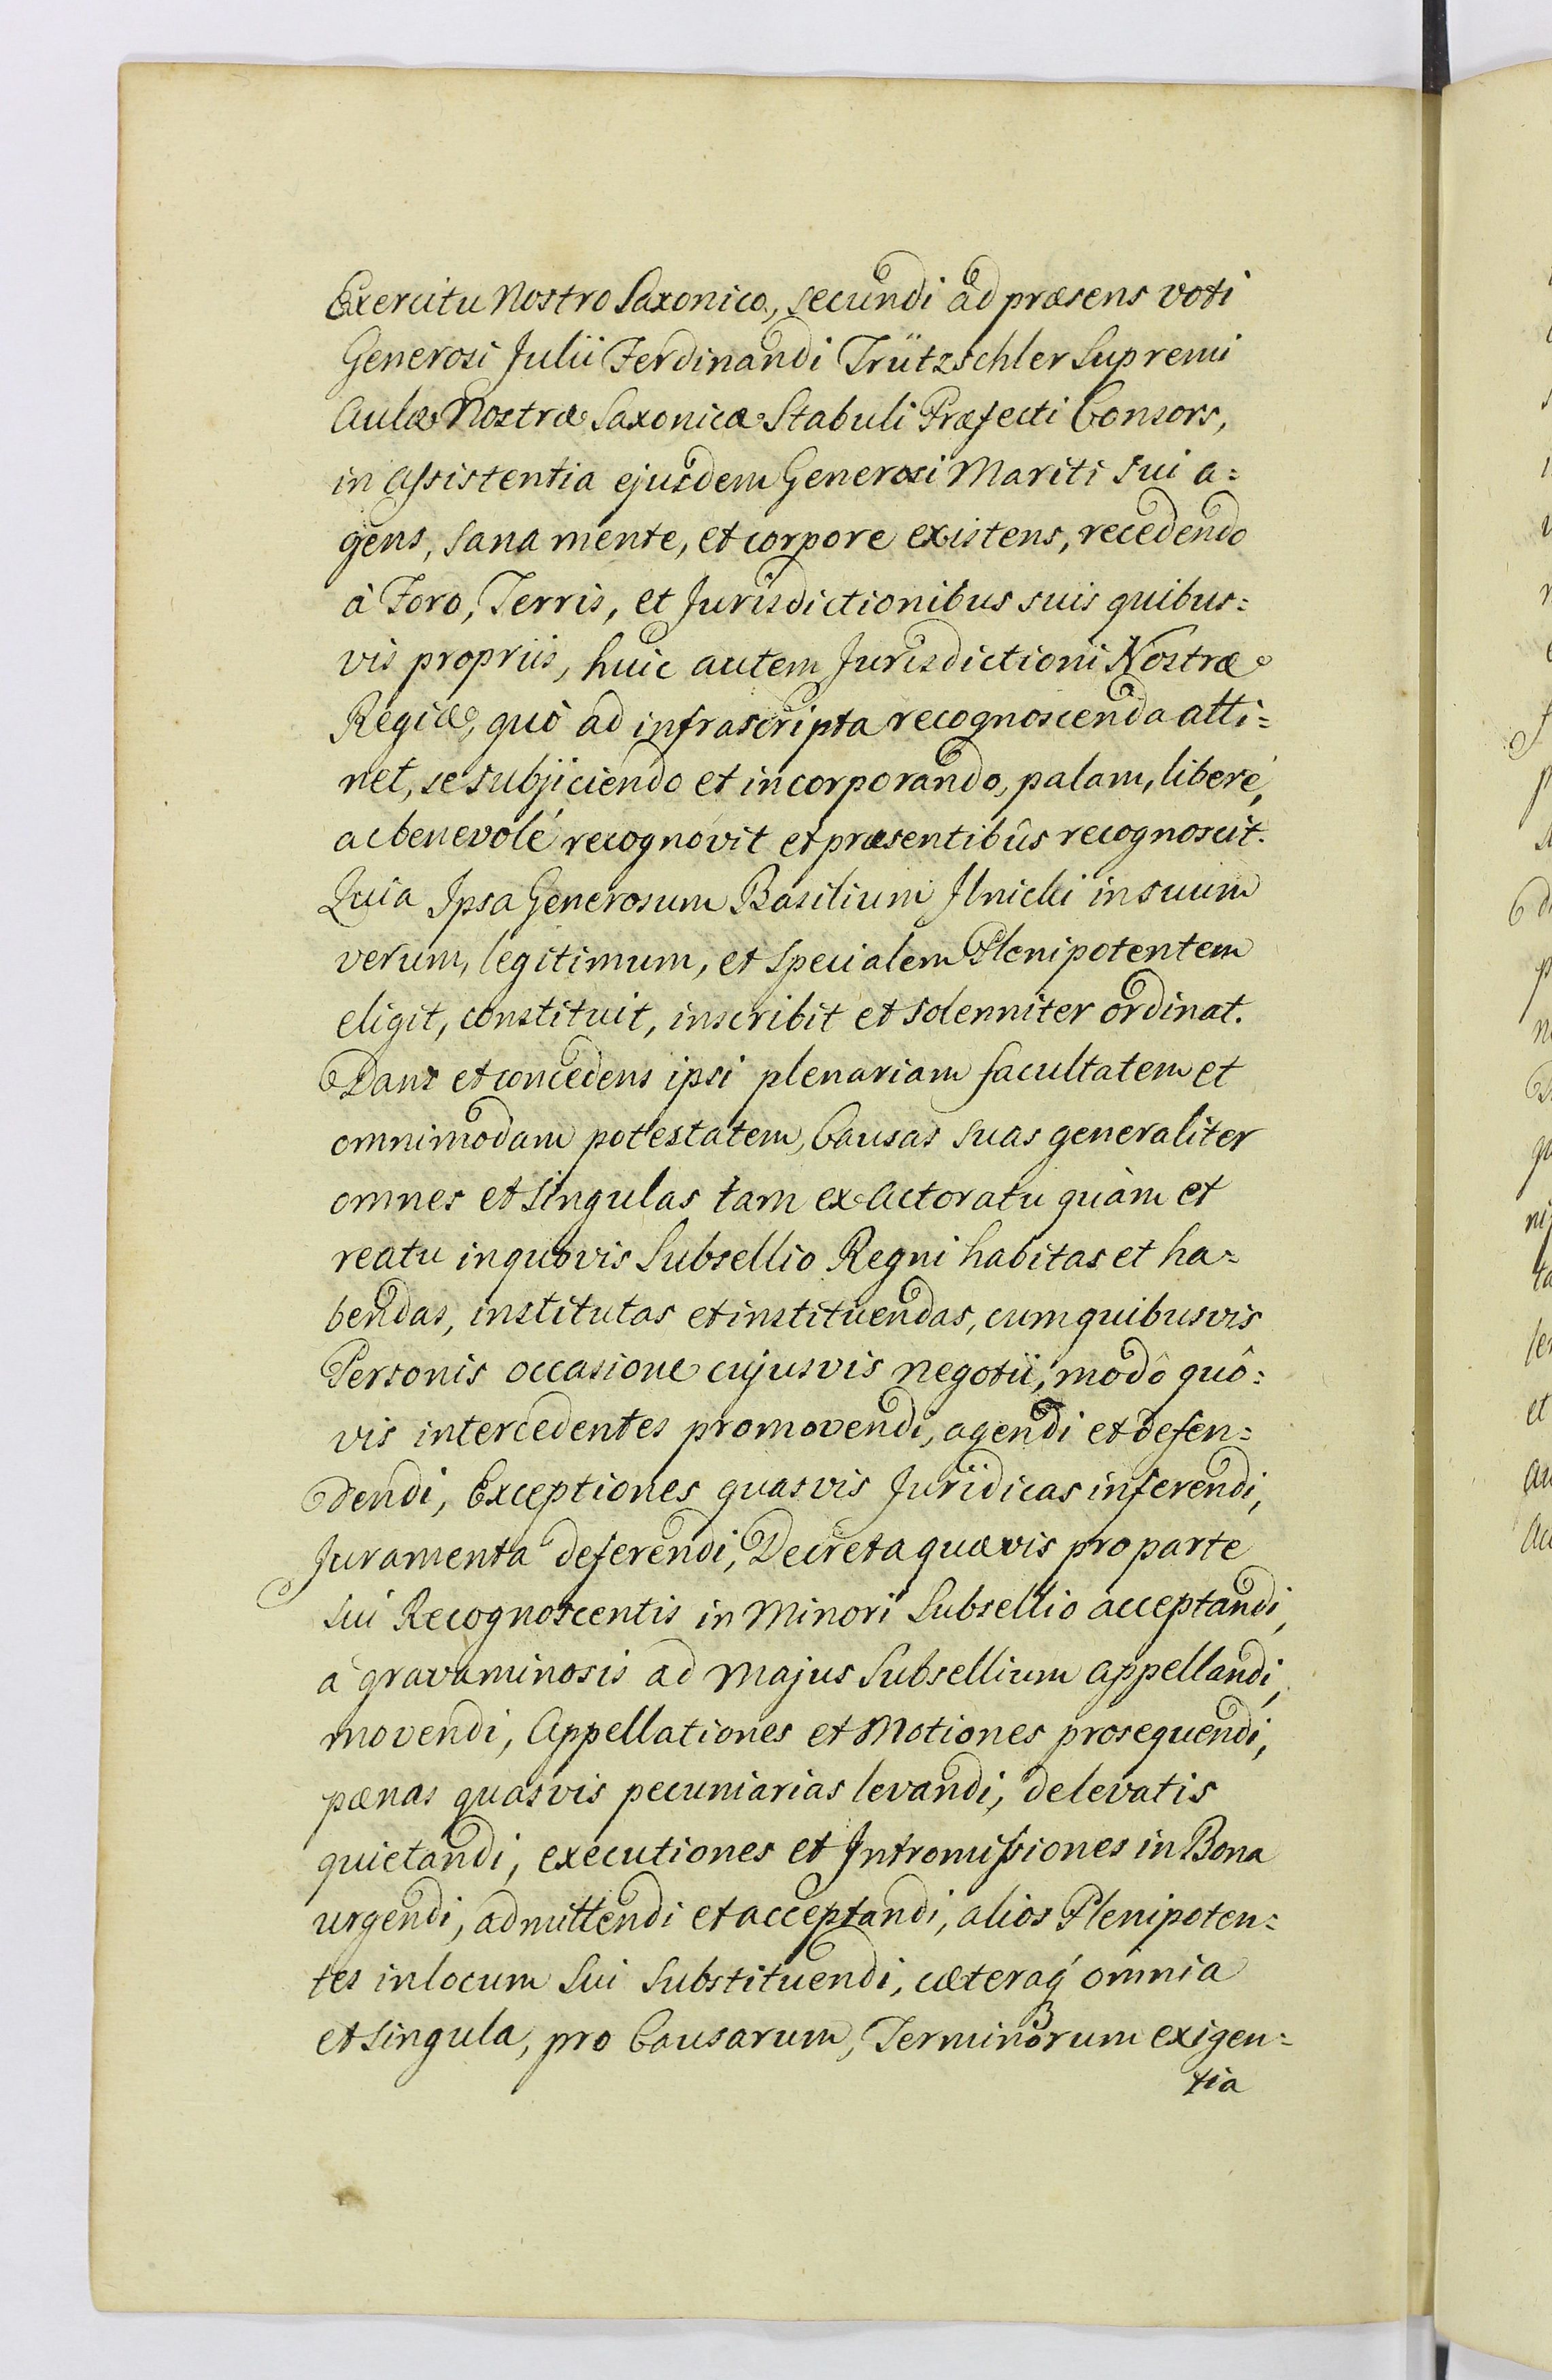 Exercitu Nostro Saxonico, secundi ad præsens voti
Generosi Julii Ferdinandi Trützschler Supremi
Aulæ Nostræ Saxonicæ Stabuli Præfecti Consors,
in assistentia ejusdem Generosi Mariti sui a=
gens, sana mente, et corpore existens, recedendo
à Foro, Terris, et Jurisdictionibus suis quibus=
vis propriis, huic autem Jurisdictioni Nostræ
Regiæ, quò ad infrascripta recognoscenda atti=
net, se subjiciendo et incorporando, palam, liberé,
ac benevolé recognovit et præsentibûs recognoscit.
Quia Ipsa Generosum Basilium Ilnicki in suum
verum, legitimum, et specialem Plenipotentem
eligit, constituit, inscribit et solenniter ordinat.
Dans et concedens ipsi plenariam facultatem et
omnimodam potestatem, Causas suas generaliter
omnes et singulas tam ex Actoratu quàm et
reatu in quovis Subsellio Regni habitas et ha=
bendas, institutas et instituendas, cum quibusvis
Personis occasione cujusvis negotii, modô quô=
vis intercedentes promovendi, agendi et defen=
dendi, Exceptiones quasvis Juridicas inferendi,
Juramenta deferendi, Decreta quævis pro parte
sui Recognoscentis in Minori Subsellio acceptandi,
a gravaminosis ad Majus Subsellium appellandi,
movendi, Appellationes et Motiones prosequendi,
pænas quasvis pecuniarias levandi, de levatis
quietandi, executiones et Intromissiones in Bona
urgendi, admittendi et acceptandi, alios Plenipoten=
tes in locum Sui Substituendi, cæteraq́ omnia
et singula, pro Causarum, Terminorum exigen=
tia